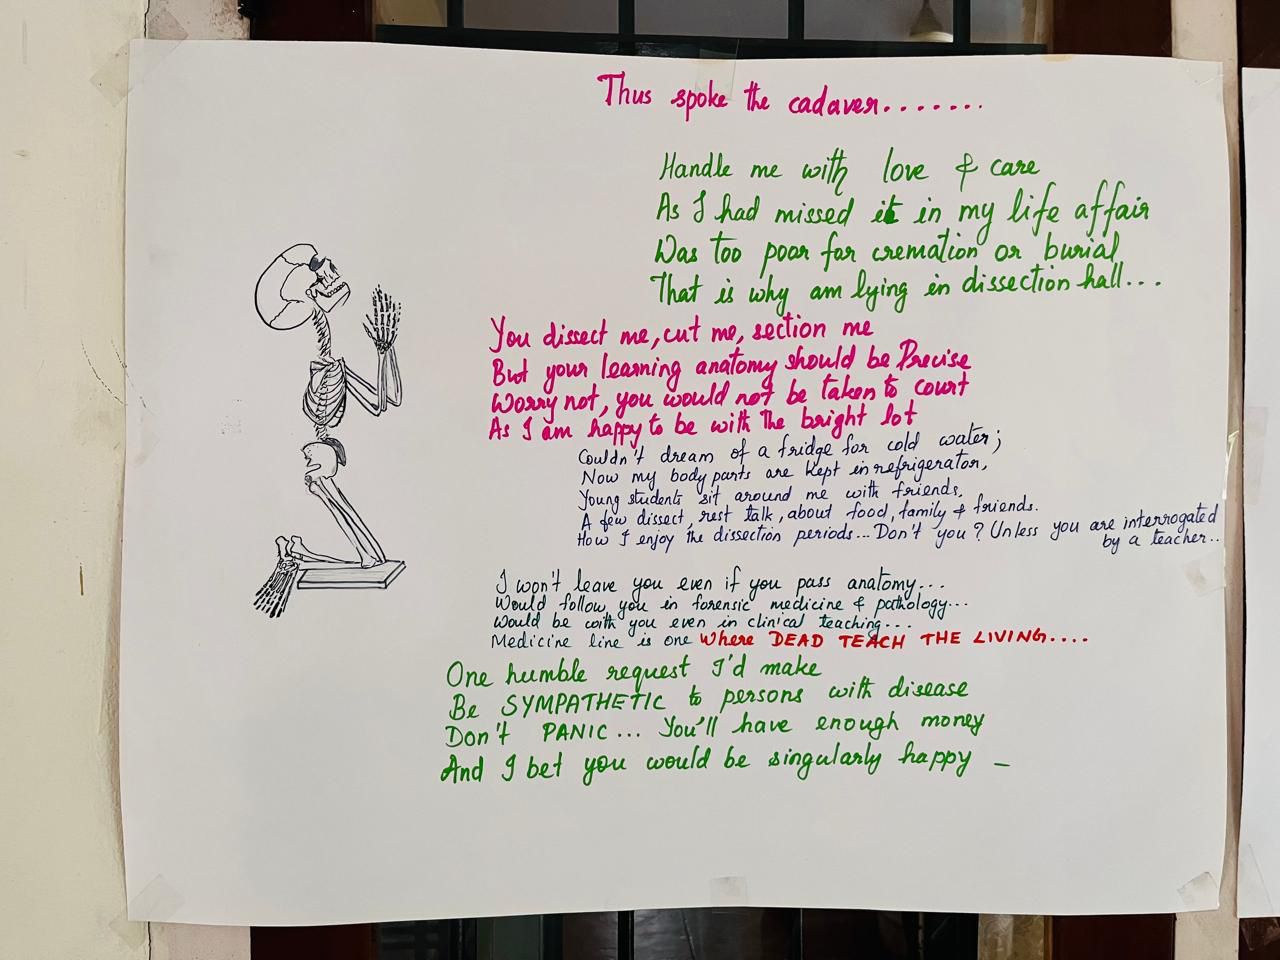 Thus spoke the cadaver.......
Handle me with love & care
As I had missed it in my life affair
Was too poor for cremation or burial
That is why am lying in dissection hall...
You dissect me, cut me, section me
But your learning anatomy should be Precise
Worry not, you would not be taken to court
As I am happy to be with the bright lot
Couldn't dream of a fridge for cold water;
Now my body parts are kept in refrigerator,
Young students sit around me with friends,
A few dissect, rest talk, about food, family & friends.
How I enjoy the dissection periods... Don't you? Unless you are interrogated
by a teacher..
I won't leave you even if you pass anatomy...
Would follow you in forensic medicine & pathology...
Would be with you even in clinical teaching...
Medicine line is one where DEAD TEACH THE LIVING....
One humble request I'd make
Be SYMPATHETIC to persons with disease
Don't PANIC... You'll have enough money
And I bet you would be singularly happy _